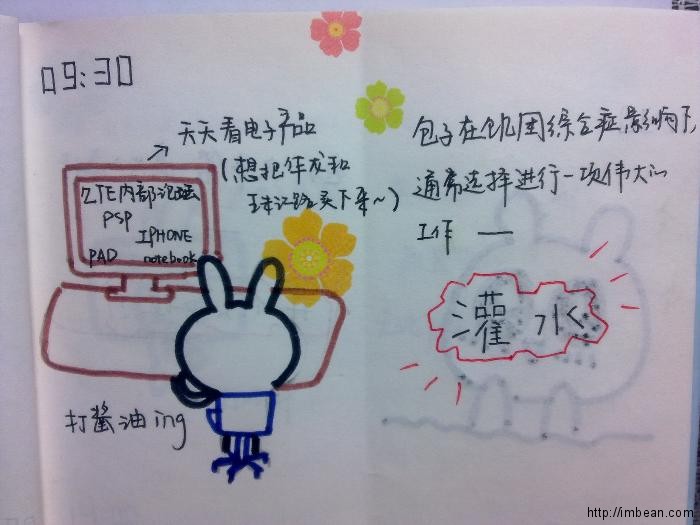 09:30
天天看电子产品
(想把华龙和
珠江路买下来~)
ZTE内部论坛
PSP
IPHONE
PAD
notebook
打酱油ing
包子在饥困综合症影响下,
通常选择进行一项伟大的
工作 ——
灌水
http://imbean.com